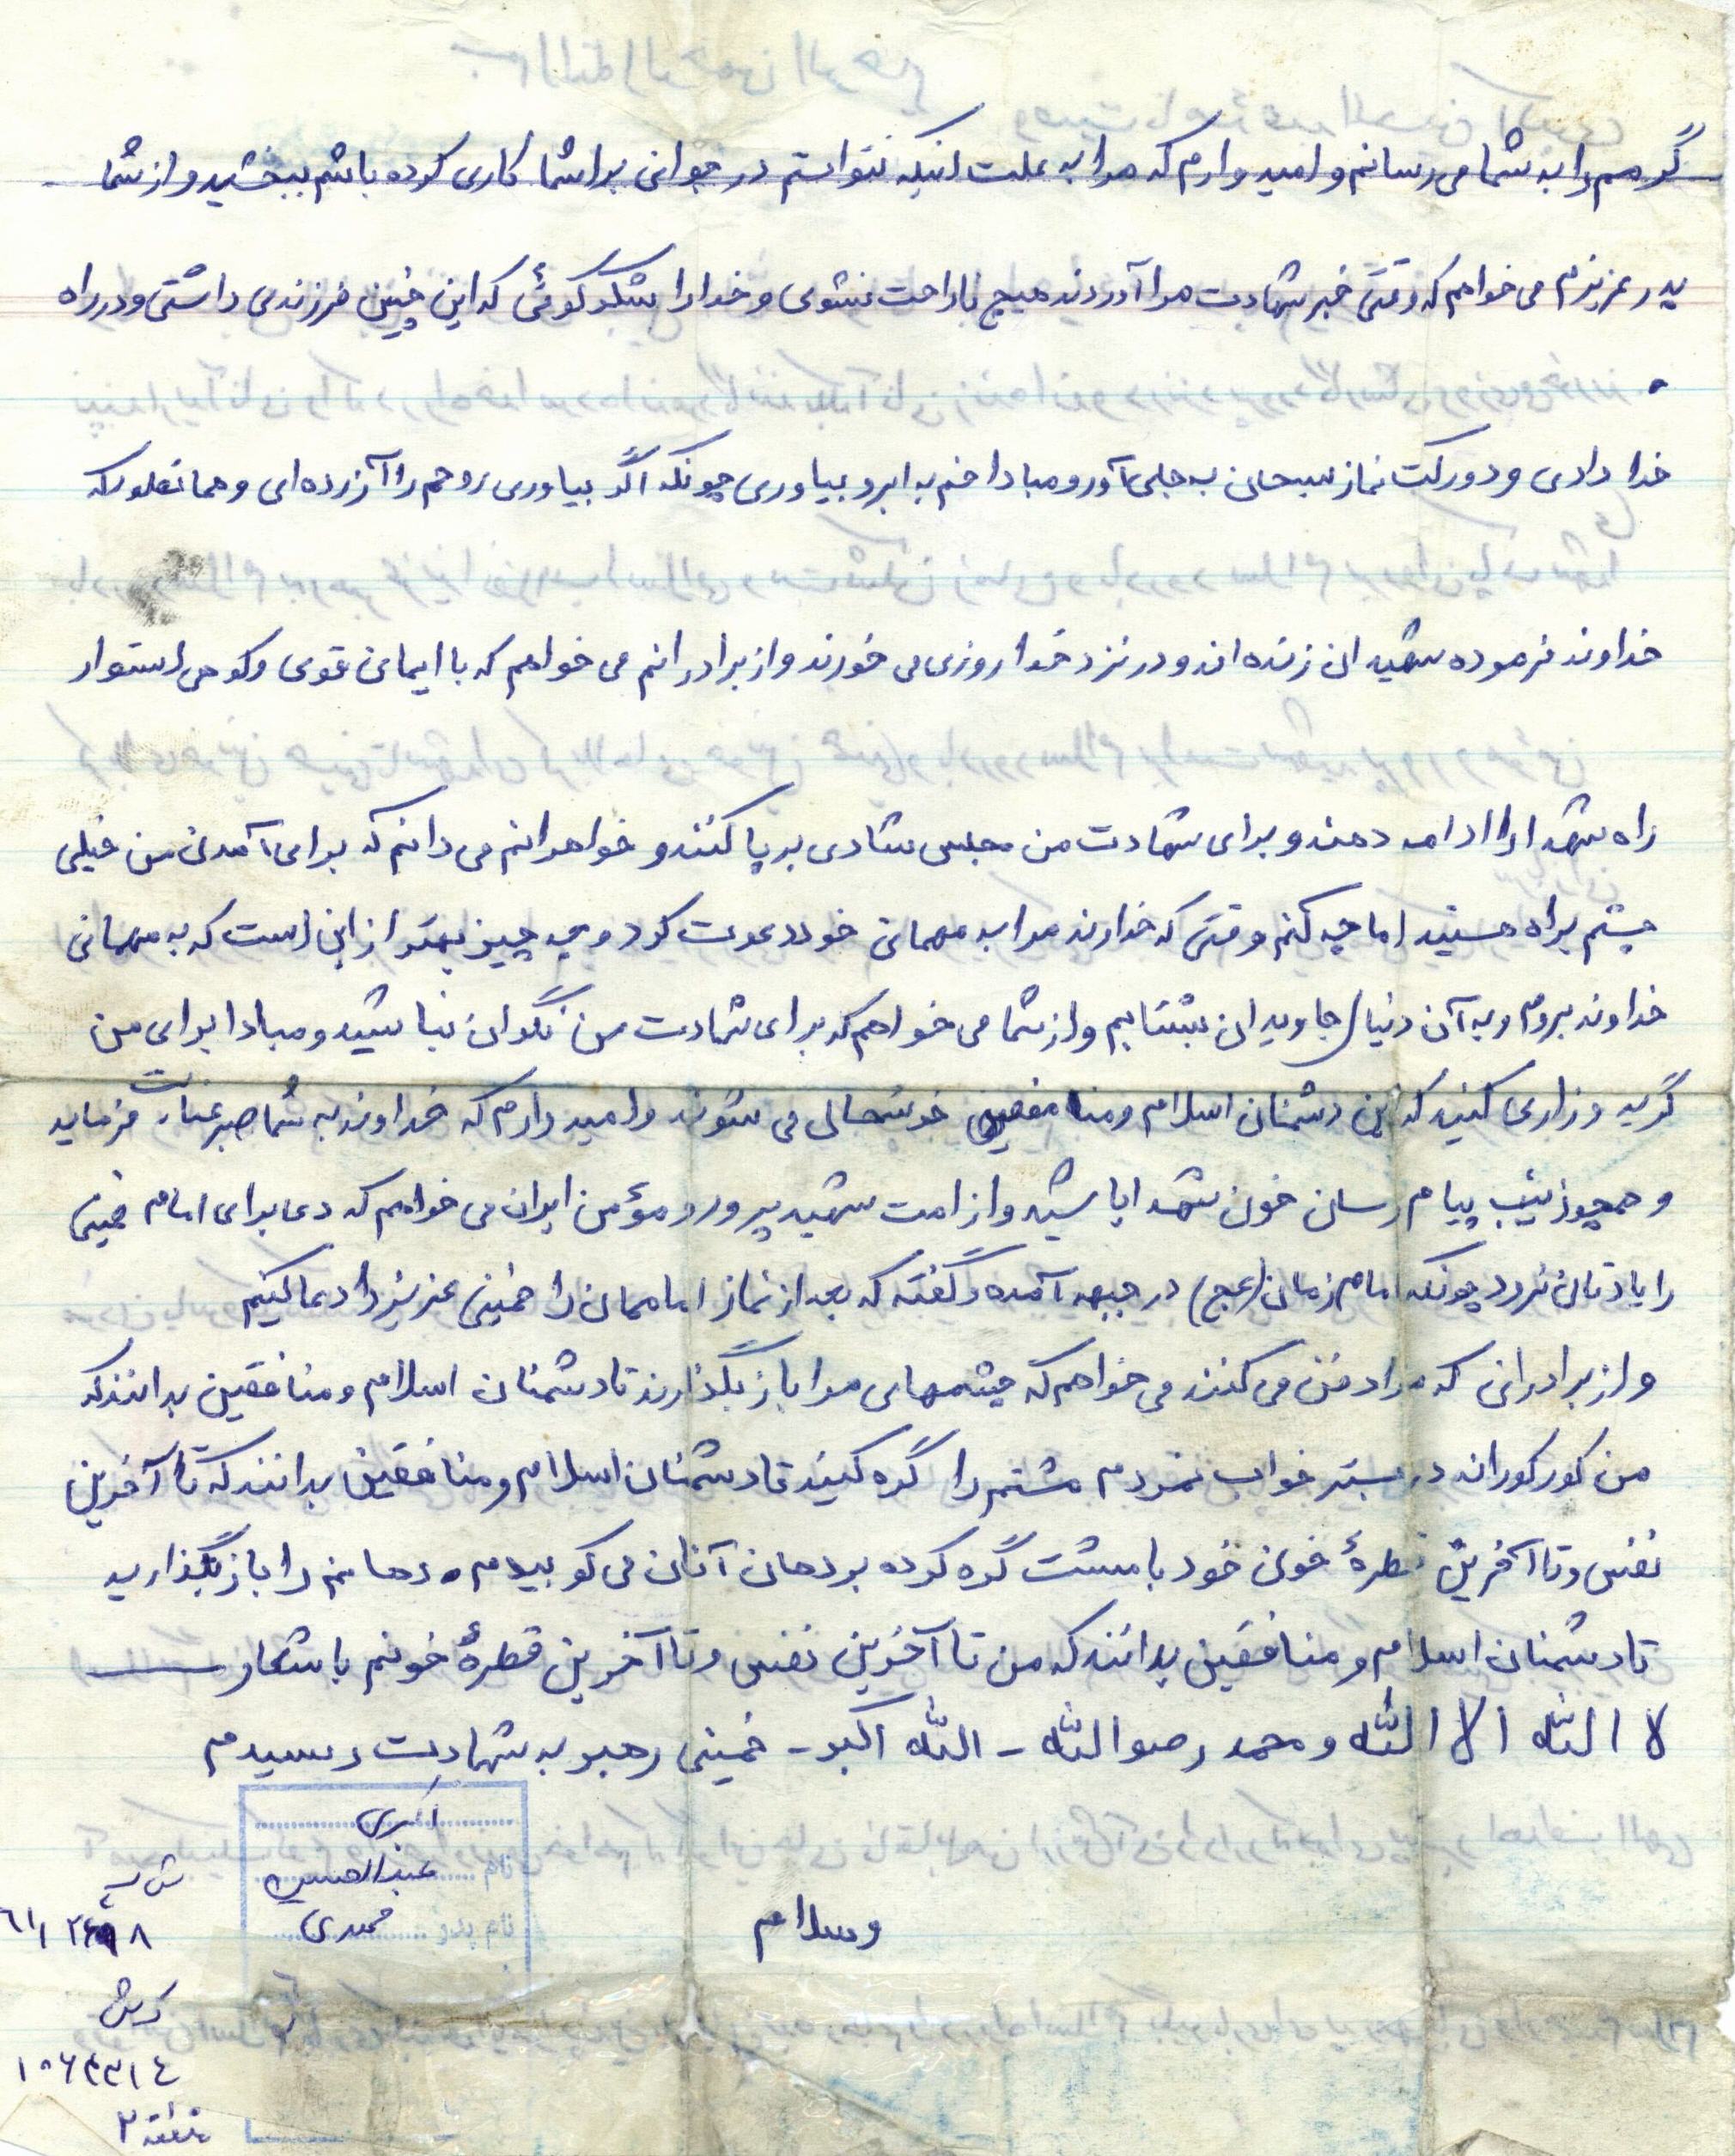 گرمم را به شما می رسانم و امید وارم که مرا به علت اینکه نتوانستم در جوانی برا شما کاری کرده باشم ببخشید و از شما
پدر عزیزم می خواهم که وقتی خبر شهادت مرا آوردند هیچ ناراحت نشوی و خدا را شکر گوئی که این چنین فرزندی داشتی و در راه
خدا دادی و دو رکت نماز سبحان به جلی آور و مبادا خم به ابرو بیاوری چونکه اگر بیاوری روحم را آزرده ای و همانطورکه
خداوند فرموده شهیدان زنده اند و در نزد خدا روزی می خورند و از برادرانم می خواهم که با ایمانی قوی و کوهی استوار
راه شهدا را ادامه دهند و برای شهادت من مجلس شادی بر پا کنند و خواهرانم می دانم که برای آمدن من خیلی
چشم براه هستید اما چه کنم وقتی که خداوند مرا به مهمانی خود دعوت کرد و چه چیز بهتر از این است که به مهمانی
خداوند بروم و به آن دنیای جاویدان بشتابم و از شما می خواهم که برای شهادت من نگران نباشید و مبادا برای من
گریه و زاری کنید که این دشمنان اسلام و منافقین خوشحالی می شوند و امید دارم که خداوند به شما صبر عنایت فرماید
و همچو زینب پیام رسان خون شهدا باشید و از امت شهید پرور و مؤمن ایران می خواهم که دعا برای امام خمینی
را یادتان نرود چونکه امام زمان (عج) در جبهه آمده و گفته که بعد از نماز امامان را خمینی عزیز را دعا کنیم
و از برادرانی که مرا دفن می کنند می خواهم که چشمهای مرا باز بگذارند تا دشمنان اسلام و منافقین بدانند که
من کور کورانه در بستر خواب نمردم مشتم را گره کنید تا دشمنان اسلام و منافقین بدانند که تا آخرین
نفس و تا آخرین قطرهٔ خون خود با مشت گره کرده بر دهان آنان می کوبیدم . دهانم را باز بگذارید
تا دشمنان اسلام و منافقین بدانند که من تا آخرین نفس و تا آخرین قطرهٔ خونم با شعار
لا الله الا الله و محمد رصو الله - الله اکبر - خمینی رهبر به شهادت رسیدم
اکبری
نام عبدالحسین
نام پدر محمدی
وسلام
ش پ
کرش
۱۰۶۴۳۱۴
منطقه ۲